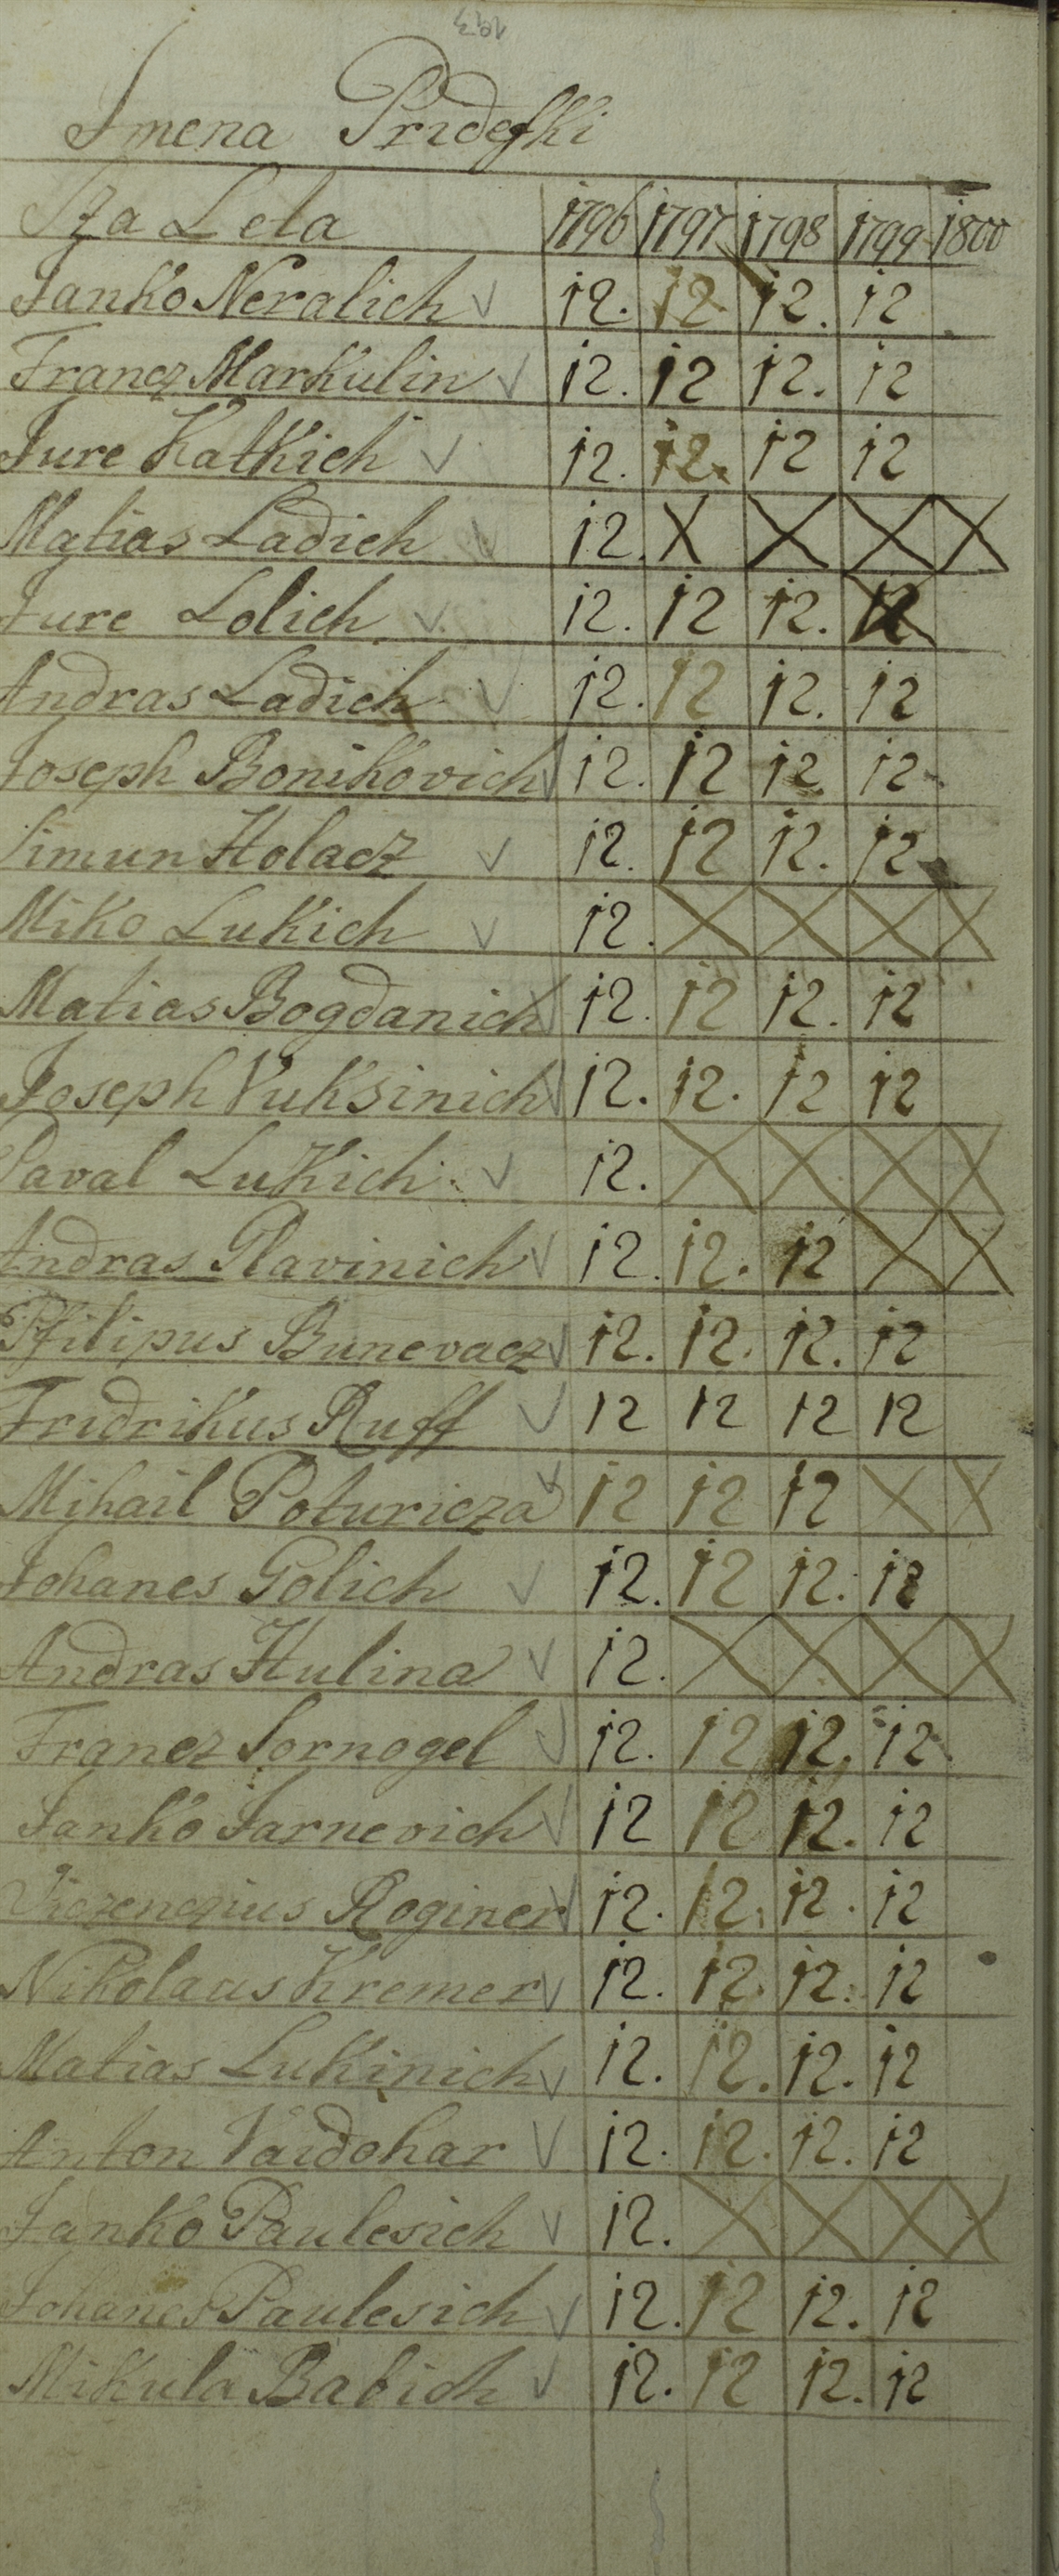 193
Imena Pridefki
Sza Leta 1796 1797 1798 1799 1800
Janko Neralich 12. 12 12. 12
Francz Markulin 12. 12 12. 12
Jure Katkich 12. 12. 12 12
Matias Ladich 12. X X X X
Jure Lolich 12. 12 12. 12
Andras Ladich 12. 12 12. 12
Joseph Bonikovich 12. 12 12 12
Simun Holacz 12. 12 12. 12
Miko Lukich 12. X X X X
Matias Bogdanich 12. 12 12. 12
Joseph Vuksinich 12. 12. 12 12
Paval Lukich 12. X X X X
Andras Glavinich 12. 12. 12 X X
Pfilipus Bunevacz 12. 12. 12. 12
Fridrikus Ruff 12 12 12 12
Mihail Poturicza 12 12 12 X X
Johanes Golich 12. 12 12. 12
Andras Hulina 12. X X X X
Francz Sornogel 12. 12 12. 12.
Janko Jarnevich 12 12 12. 12
Roginer 12. 12. 12. 12
Nikolaus Kremer 12. 12. 12. 12
Matias Lukinich 12. 12. 12. 12
Anton Vaidohar 12. 12. 12. 12
Janko Paulesich 12. X X X X
Johanes Paulesich 12. 12 12. 12
Mikula Babich 12. 12 12. 12